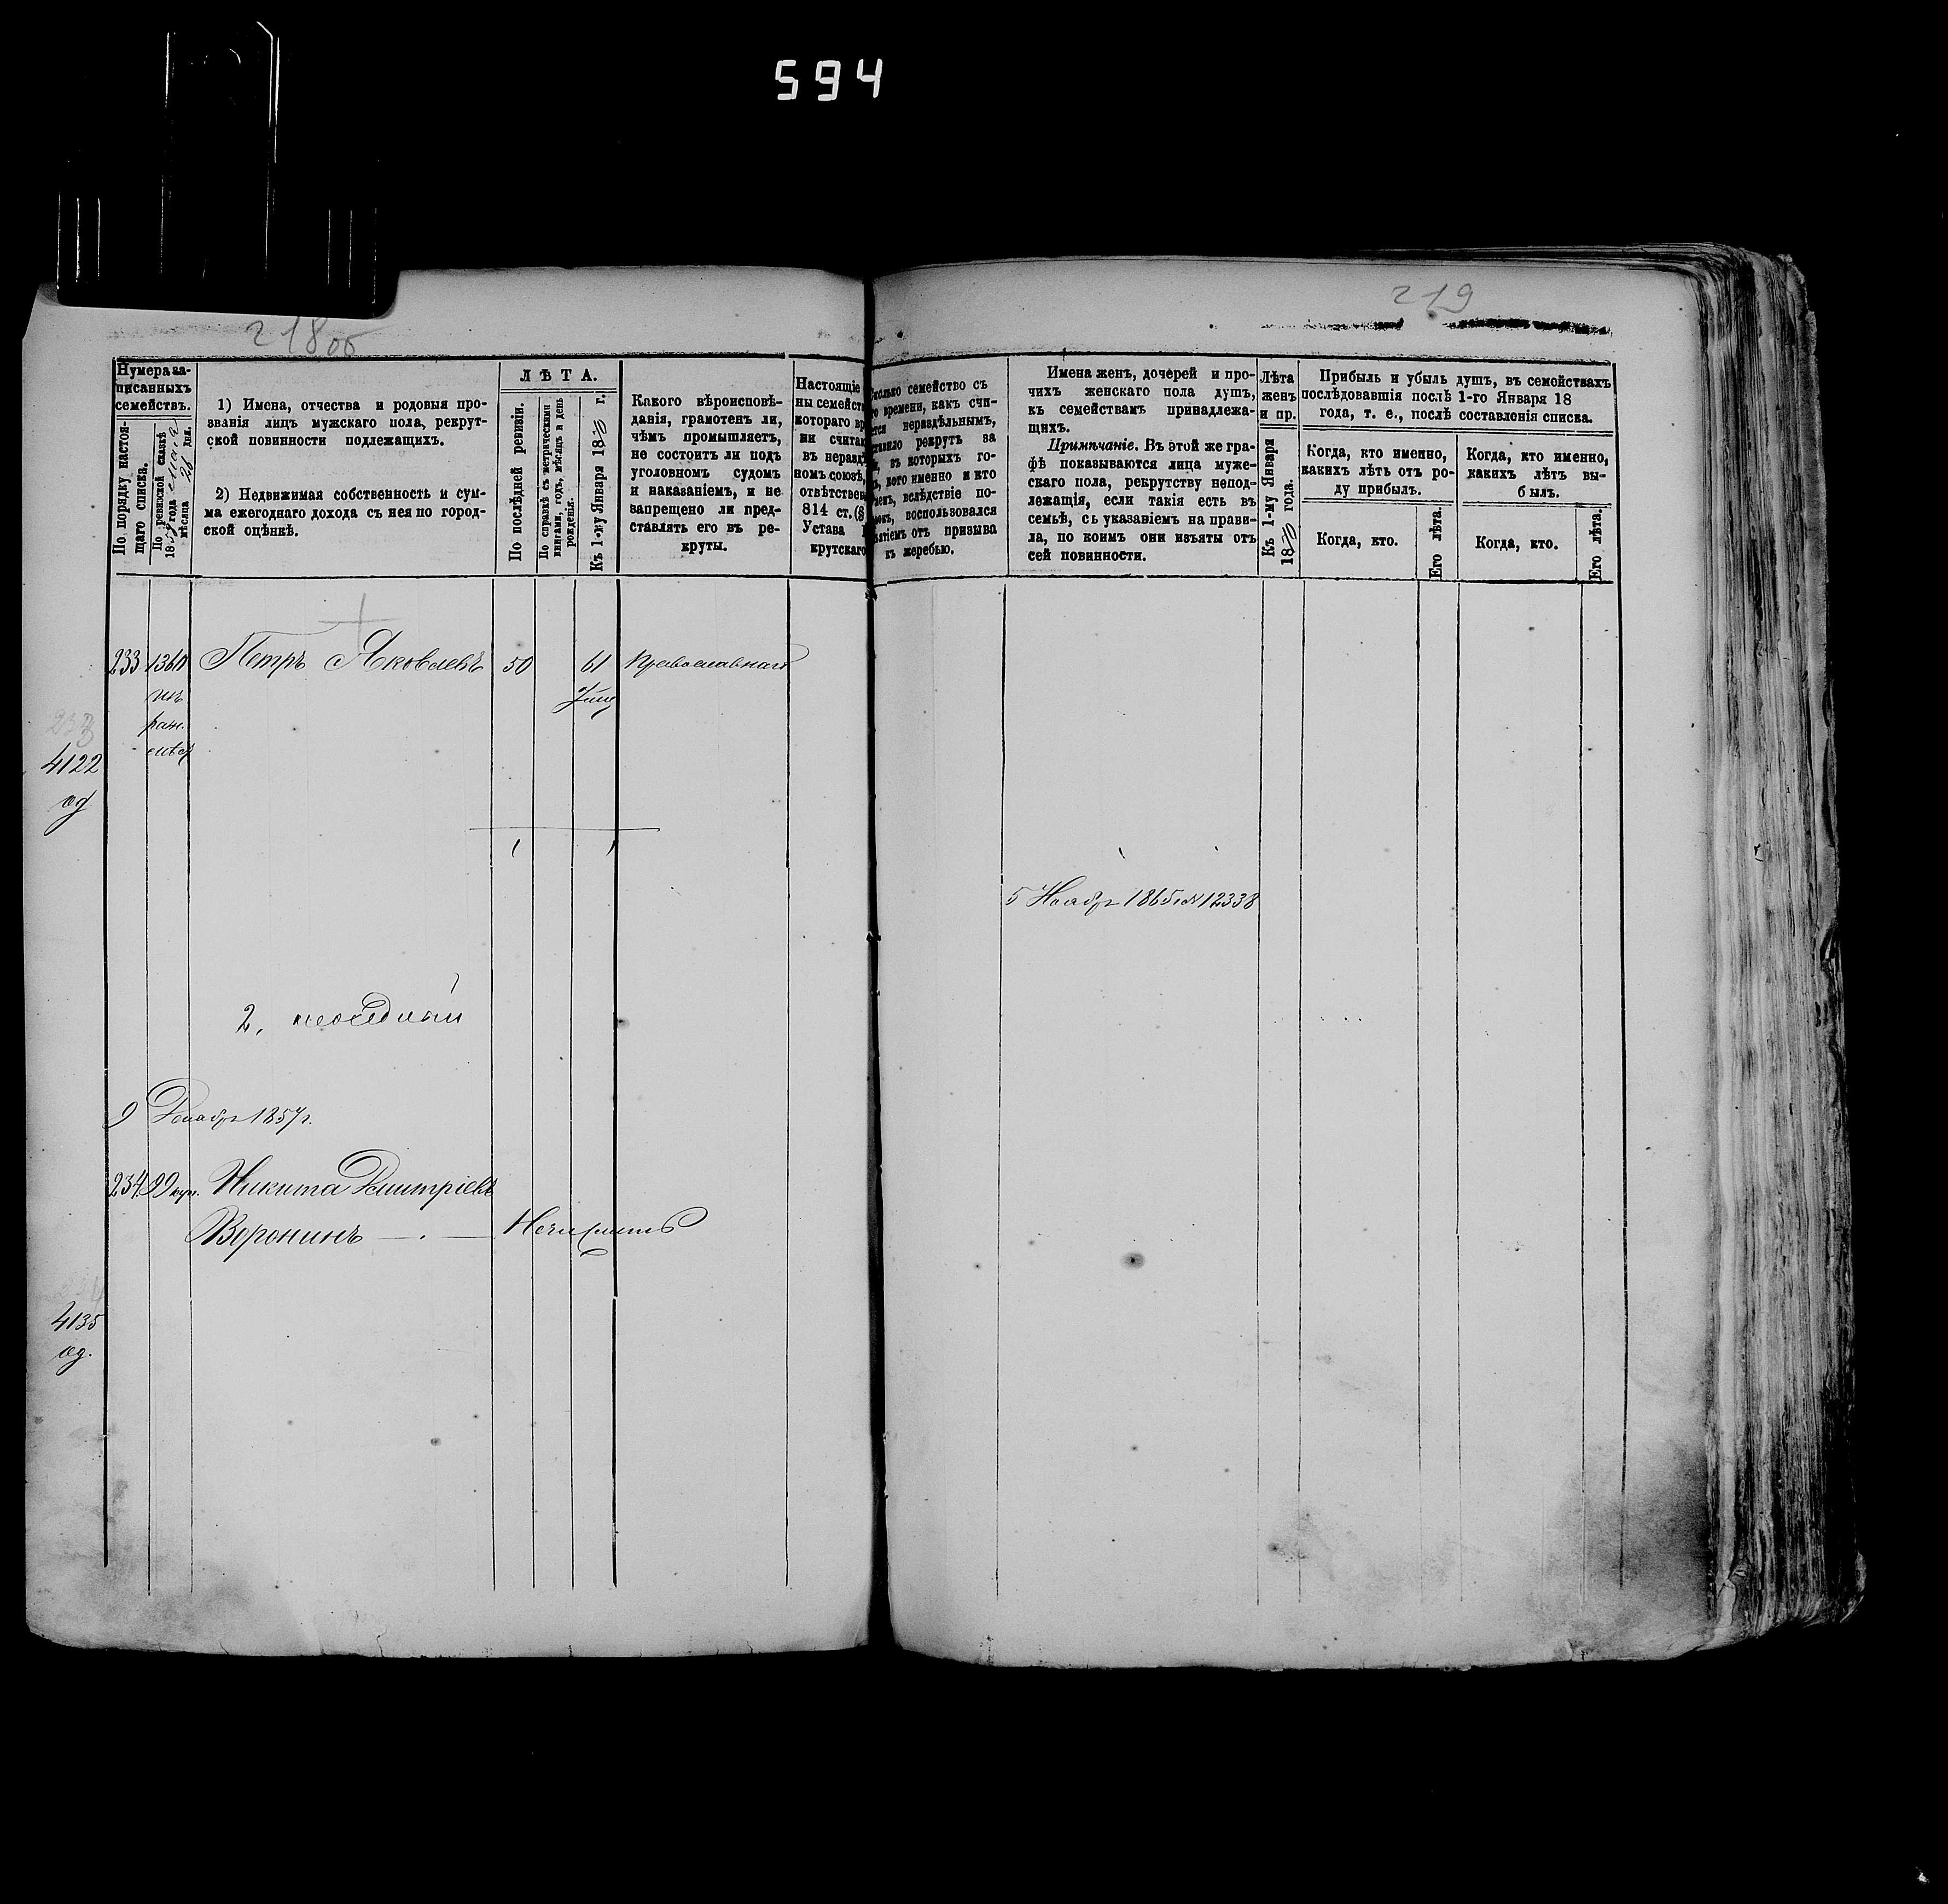 594
218 об
219
Нумера за-
писанныхъ
семействъ.
По порядку настоя-
щаго списка.
По ревизской сказкѣ
18 года
мѣсяца дня.
1) Имена, отчества и родовыя про-
званія лицъ мужскаго пола, рекрут-
ской повинности подлежащихъ.
2) Недвижимая собственность и сум-
ма ежегоднаго дохода съ нея по город-
ской оцѣнкѣ.
ЛѢТА.
По послѣдней ревизіи.
По справкѣ съ метрическими
книгами, годъ, мѣсяцъ и день
рожденія.
Къ 1-му Января 18 г.
Какого вѣроисповѣ-
данія, грамотенъ ли,
чѣмъ промышляетъ,
не состоитъ ли подъ
уголовнымъ судомъ
и наказаніемъ, и не
запрещено ли пред-
ставлять его въ ре-
круты.
Настоящіе
ны семейств
котораго вр
ни считая
въ неразд
номъ союзѣ,
отвѣтствен
814 ст. (§
Устава
крутскаго
колько семейство съ
го времени, какъ счи-
ется нераздѣльнымъ,
ставило рекрутъ за
въ которыхъ го-
кого именно и кто
вслѣдствіе по-
воспользовался
изъятіемъ отъ призыва
къ жеребью.
Имена женъ, дочерей и про-
чихъ женскаго пола душъ,
къ семействамъ принадлежа-
щихъ.
Примѣчаніе. Въ этой же гра-
фѣ показываются лица муже-
скаго пола, рекрутству непод-
лежащія, если такія есть въ
семьѣ, съ указаніемъ на прави-
ла, по коимъ они изъяты отъ
сей повинности.
Лѣта
женъ
и пр.
Къ 1-му Января
18 года.
Прибыль и убыль душъ, въ семействахъ
послѣдовавшія послѣ 1-го Января 18
года, т. е., послѣ составленія списка.
Когда, кто именно,
какихъ лѣтъ отъ ро-
ду прибылъ.
Когда, кто именно,
какихъ лѣтъ вы-
былъ.
Когда, кто.
Его лѣта.
Когда, кто.
Его лѣта.
233 1360 Петръ Яковлевъ 50 61 Православнаго
233
4122
од
5 Ноября 1865 № 12338
2.
9 Декабря 1857 г.
234 99 куп. Никита Дмитріевъ
Воронинъ
4135
од.